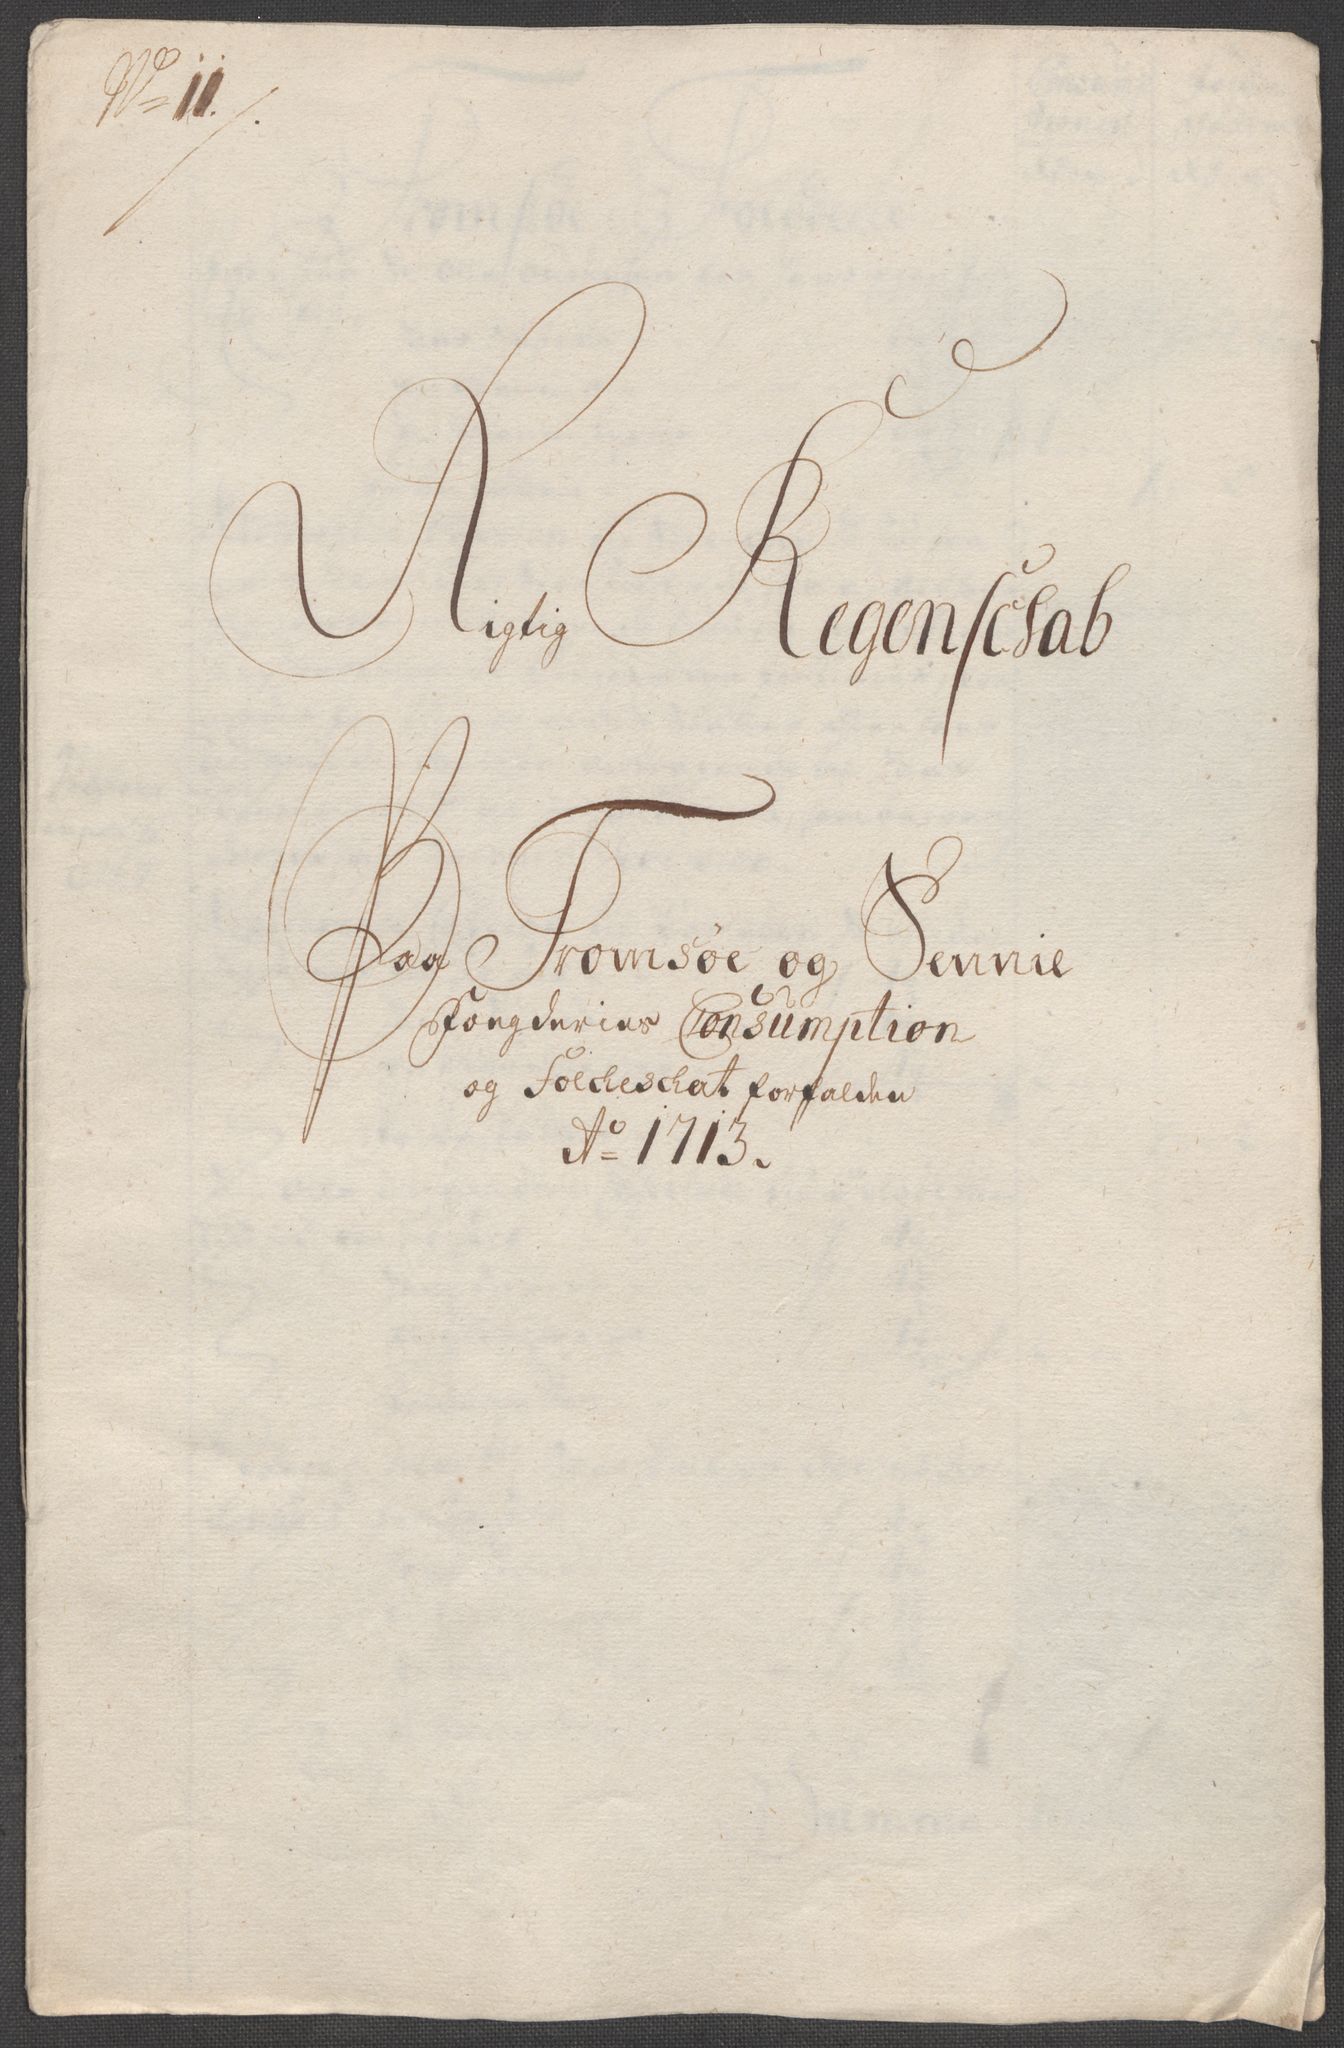 No 11.
Rigtig Regenschab
Paa Tromsøe og Sennie
Fougderies Consumption
og Folcheschat forfalden
Ao 1713.